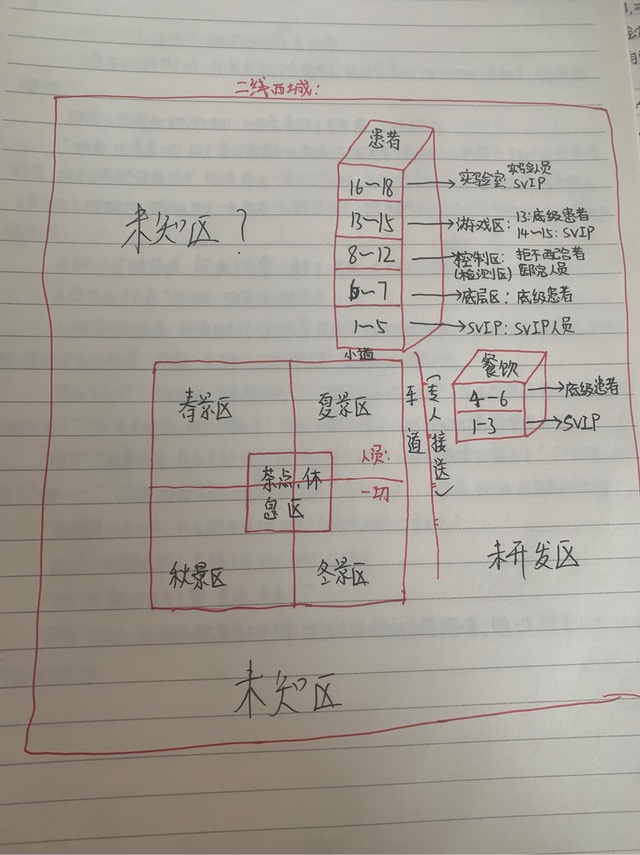 二线西城：
患者
16~18
实验室：实验人员
SVIP
13~15
游戏区：13：底级患者
14~15：SVIP
8~12
控制区：拒不配合者
(检测区)
6~7
底层区：底级患者
1~5
SVIP：SVIP人员
未知区？
小道
春景区
夏景区
车道
(专人接送)
餐饮
4-6
底级患者
1-3
SVIP
茶点、休
息区
人员：
一切
秋景区
冬景区
未开发区
未知区